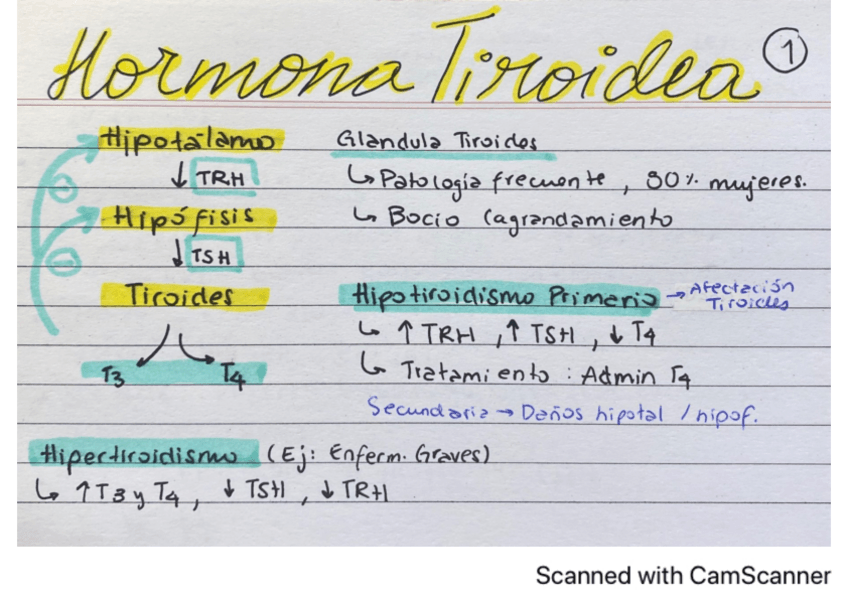 Hormona Tiroidea 1
Hipotálamo
↓ TRH
Hipófisis
↓ TSH
Tiroides
T3 T4
Glandula Tiroides
↳ Patología frecuente, 80% mujeres.
↳ Bocio (agrandamiento
Hipotiroidismo Primario → Afectación Tiroides
↳ ↑ TRH, ↑ TSH, ↓ T4
↳ Tratamiento: Admin T4
Secundaria → Daños hipotal / hipof.
Hipertiroidismo (Ej: Enferm. Graves)
↳ ↑ T3 y T4, ↓ TSH, ↓ TRH
Scanned with CamScanner